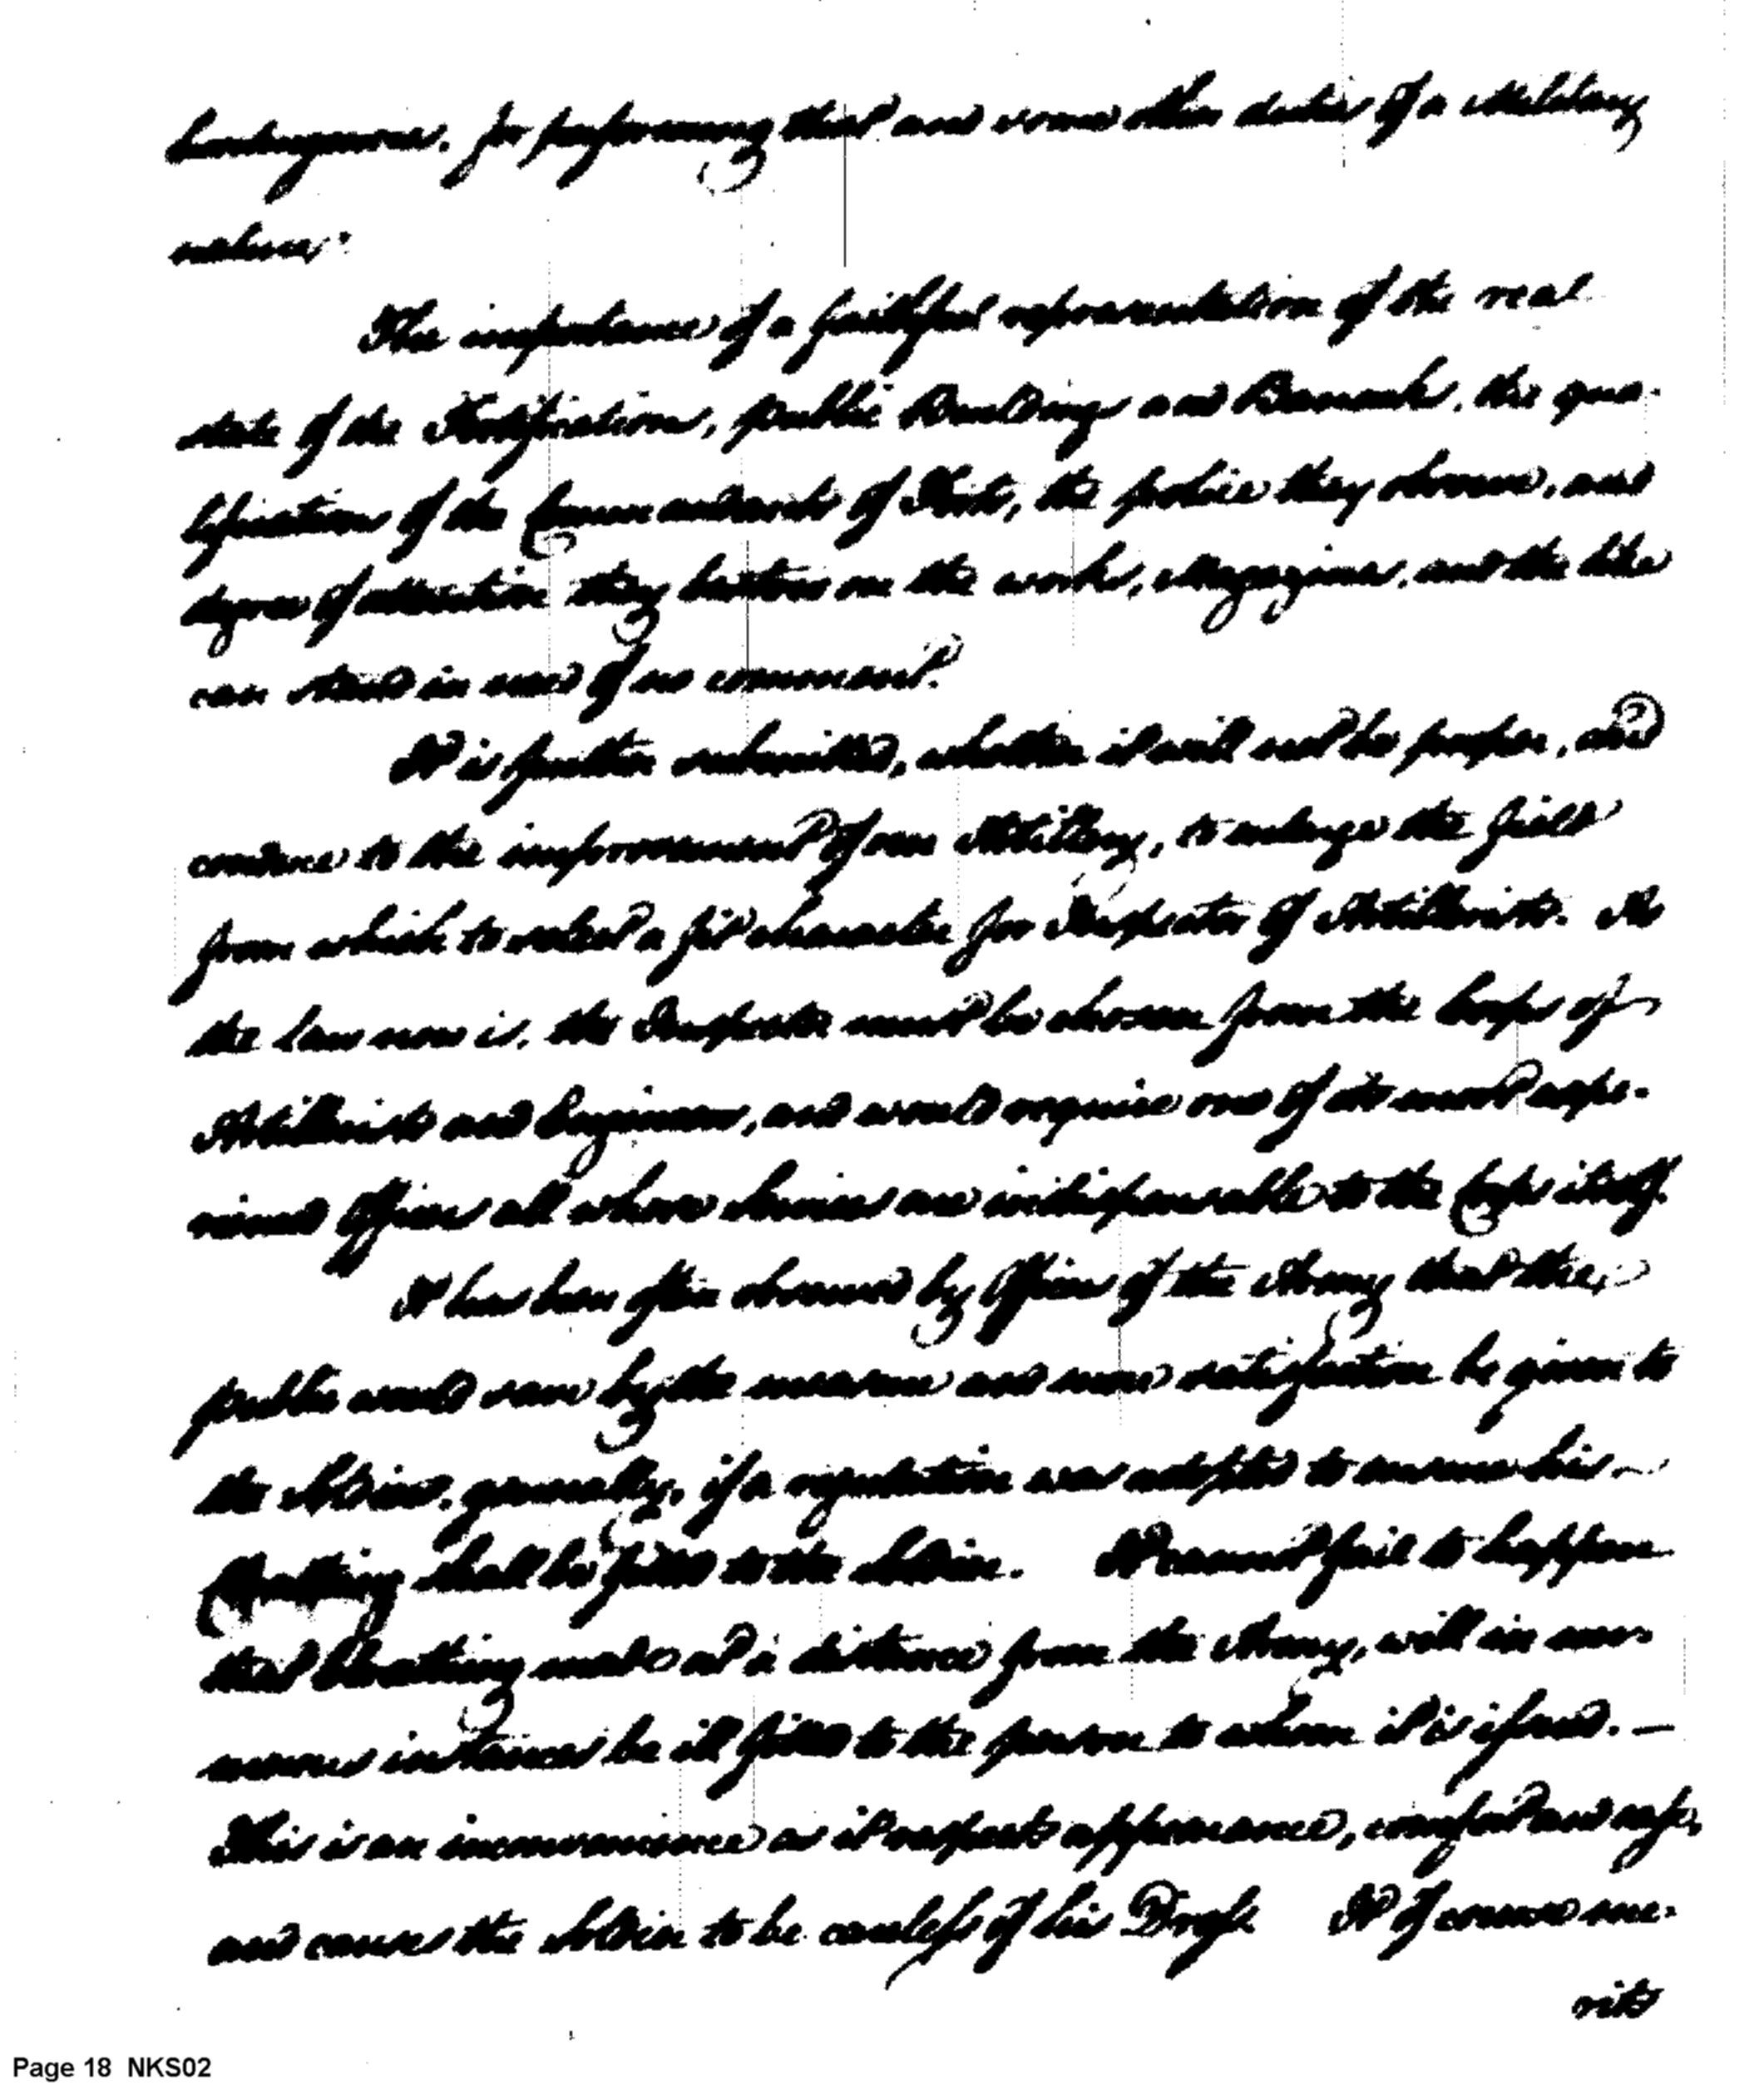 for performing these and some other duties of a Military
nature.
The importance of a faithful representation of the real
state of the Fortification, public Buildings and Barracks, the qua-
lification of the Commandants of Forts, the police they observe, and
degree of attention they bestow on the works, Magazines, and the like
can stand in need of no comment.
It is further submitted, whether it will not be proper, and
conduce to the improvement of our Artillery, to enlarge the field
from which to select a fit character for Inspector of Artillerists. As
the law now is, the Inspector must be chosen from the Corps of
Artillerists and Engineers, and would require one of its most expe-
rienced Officers all whose services are indispensable to the Corps itself.
It has been often observed by Officers of the Army that the
public would save by the measure and more satisfaction be given to
the Soldiers, generally, if a regulation was adopted to ensure his
Cloathing shall be fitted to the Soldier. It cannot fail to happen
that Cloathing made at a distance from the Army, will in nu-
merous instances be ill fitted to the persons to whom it is issued. —
This is an inconvenience as it respects appearance, comfort and use,
and causes the Soldier to be careless of his Dress It of course me-
rits
Page 18 NKS02